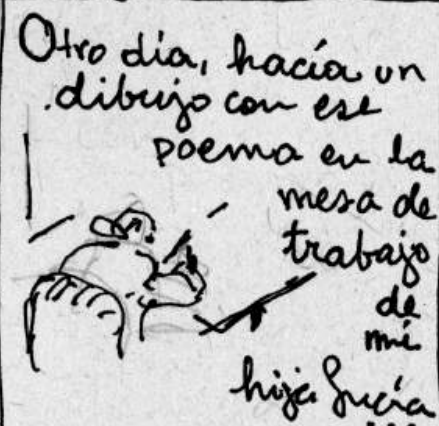 Otro día, hacía un
dibujo con ese
poema en la
mesa de
trabajo
de
mi
hija Lucía